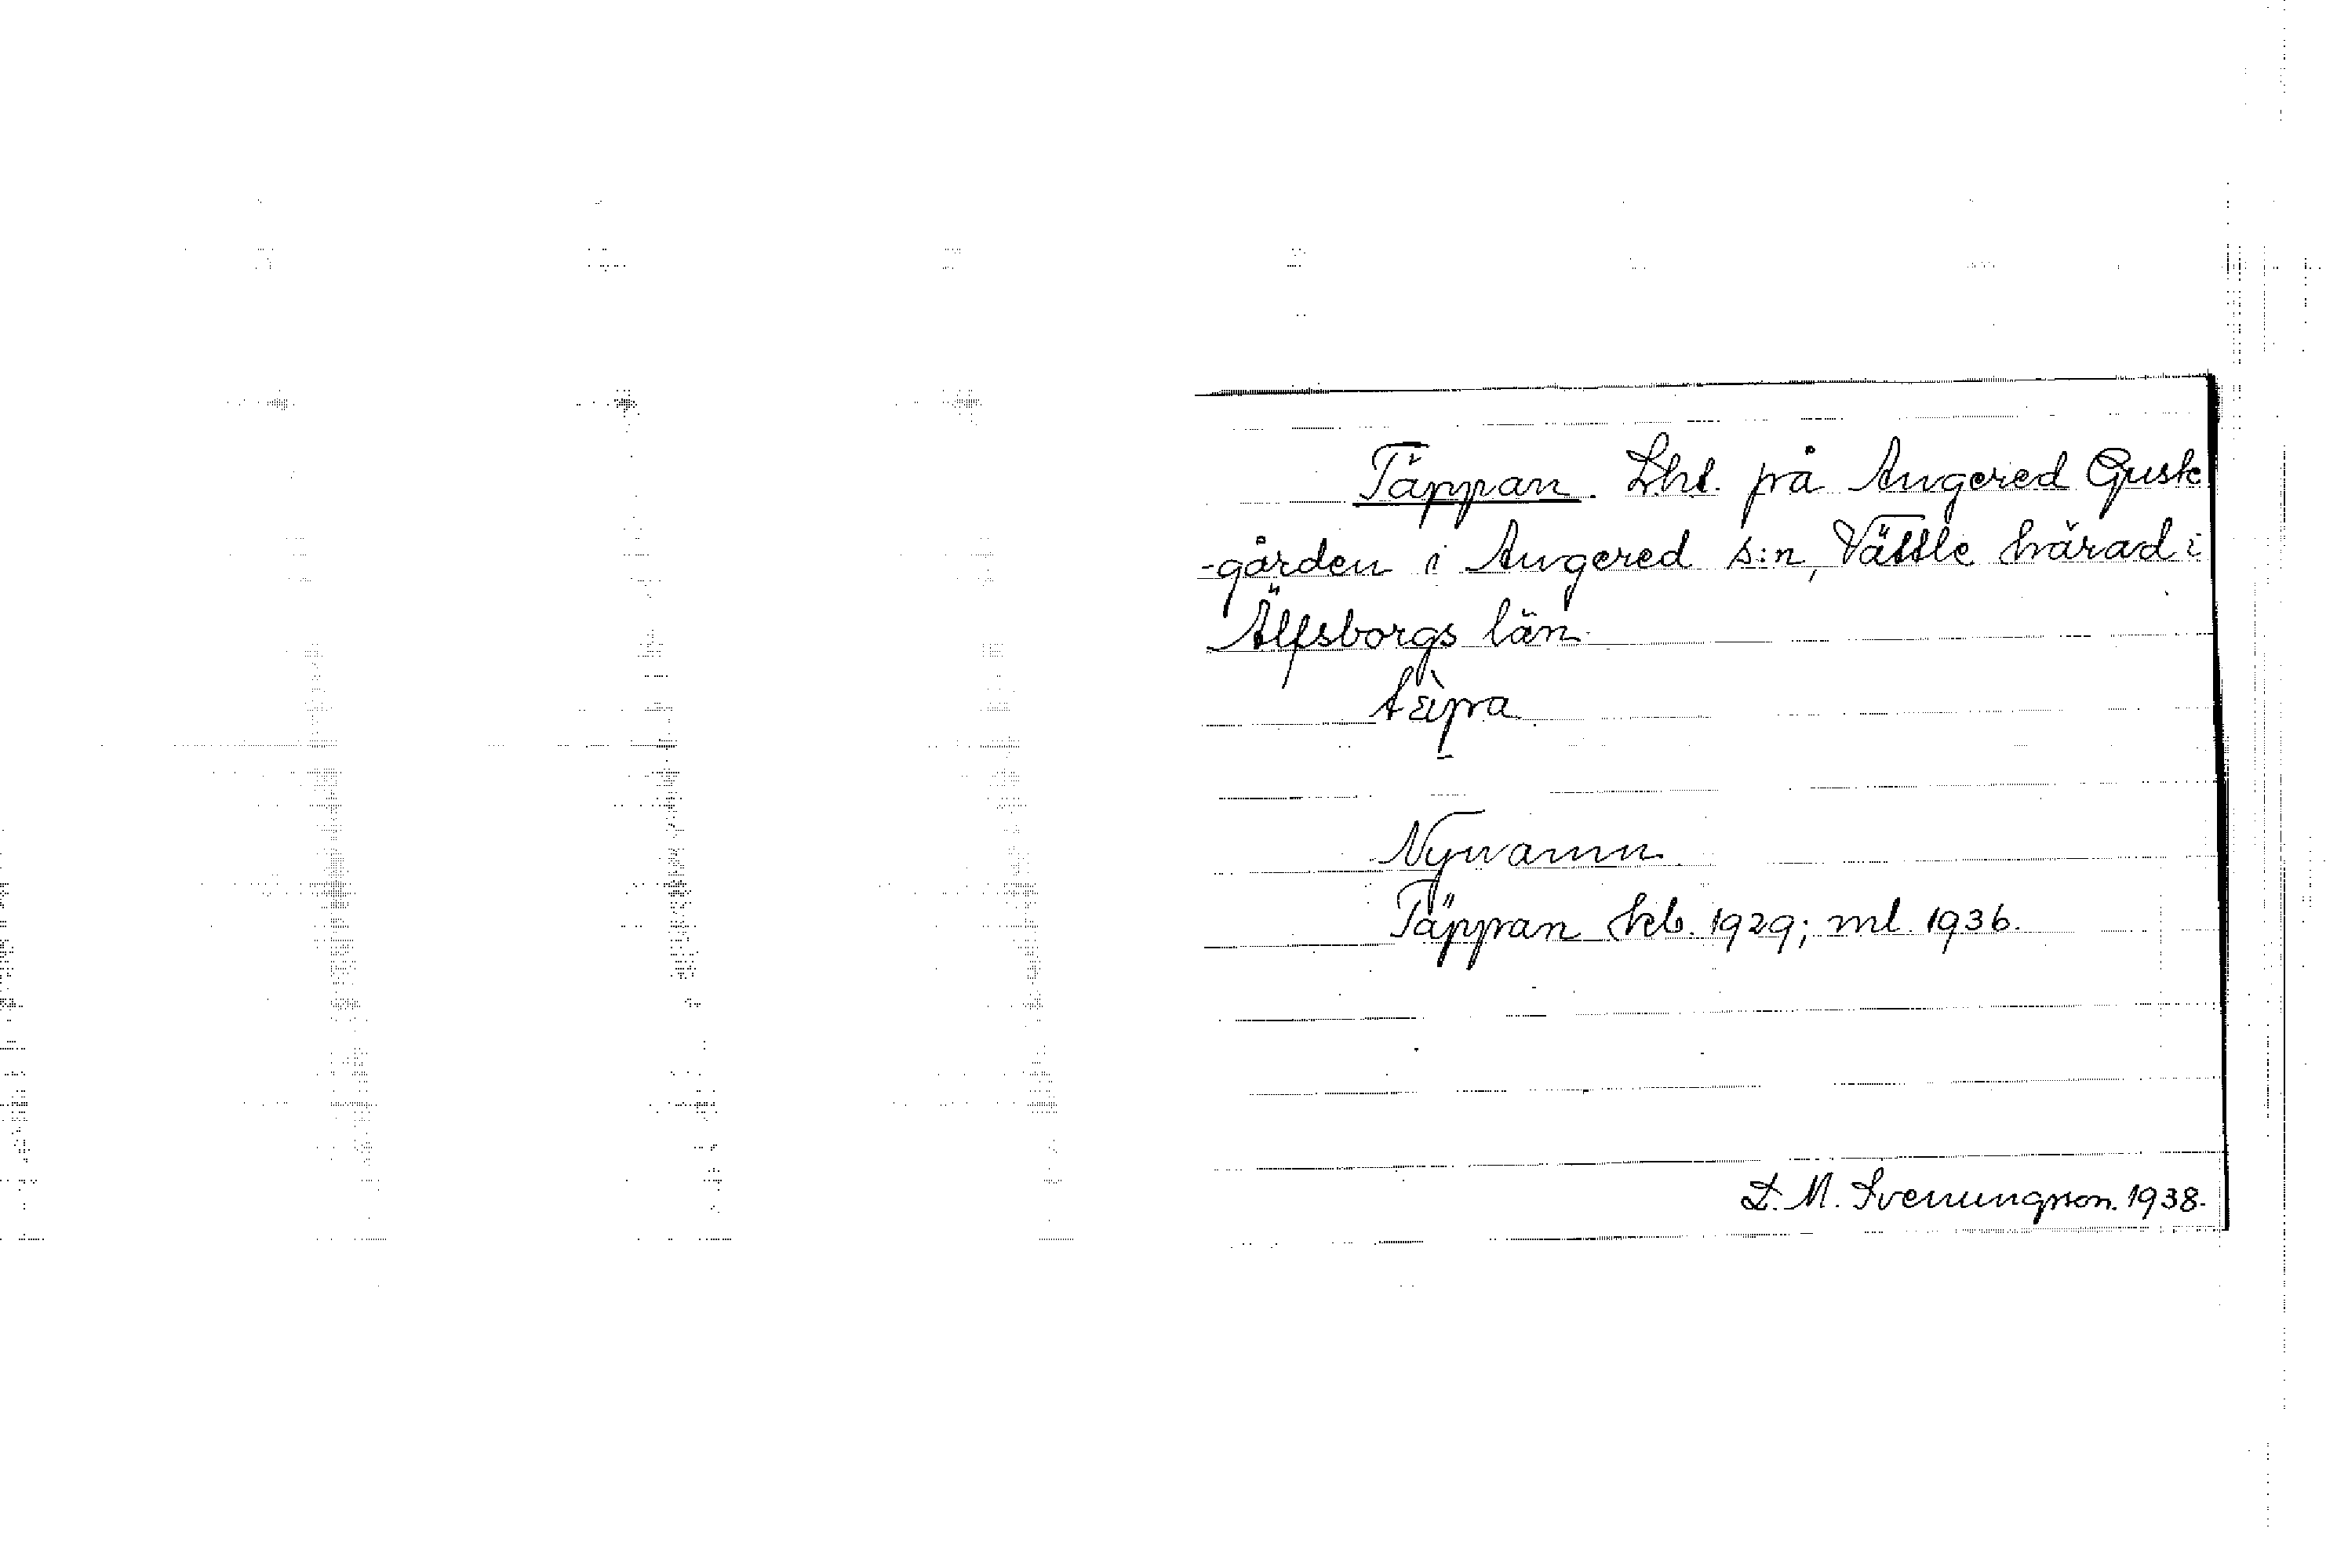 Täppan. Lht. på Angered Gusk
-gården i Angered s:n, Vättle härad i
Älfsborgs län.
Nynamn.
Täppan kb. 1929; ml. 1936.
L. M. Svenungsson. 1938.